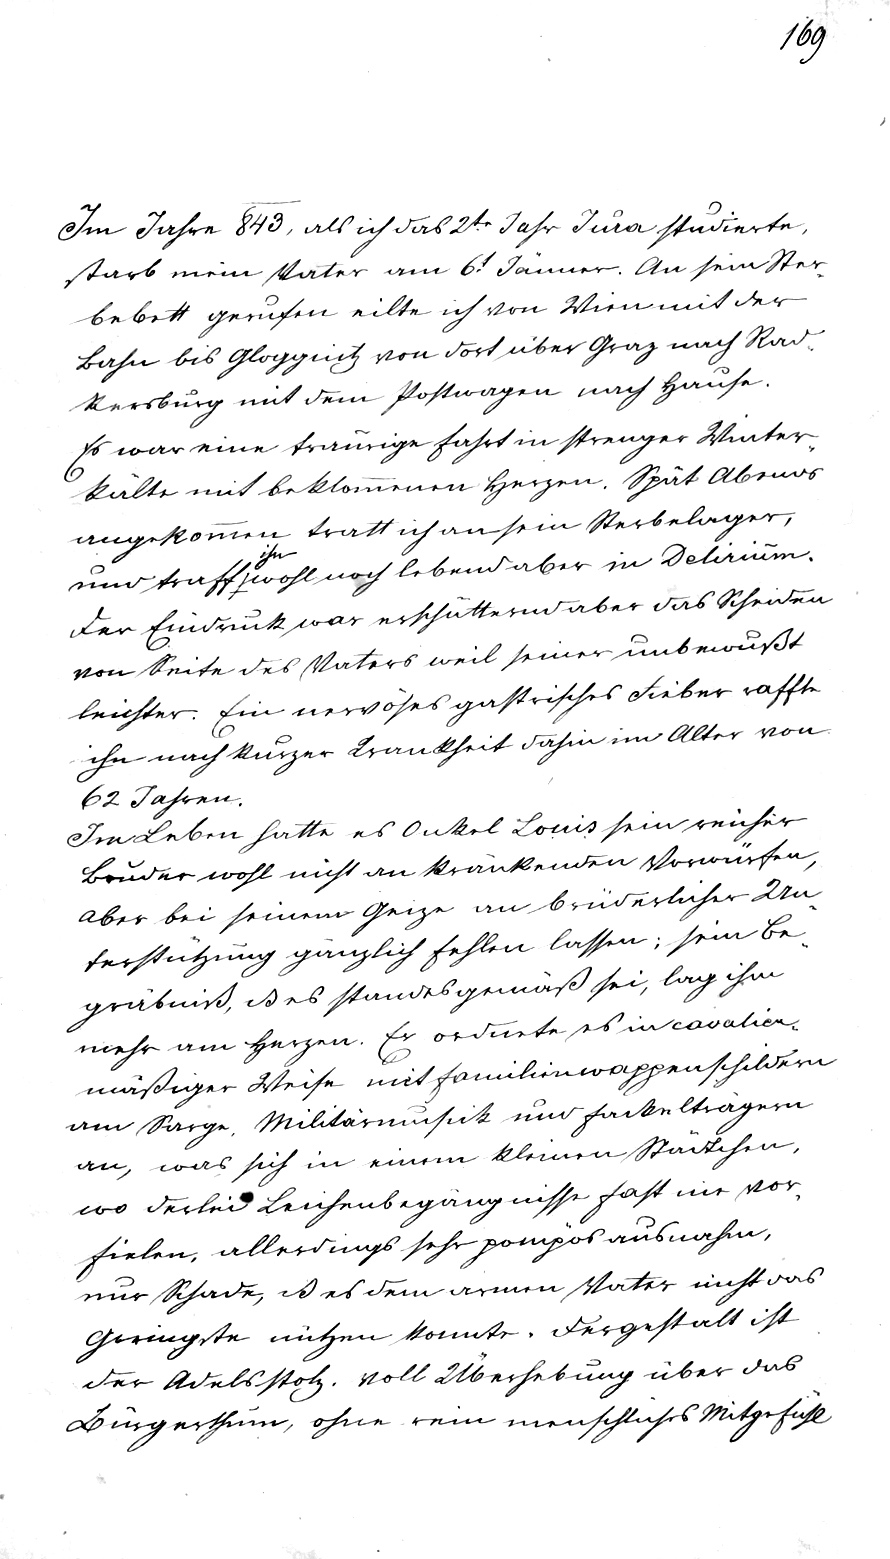 169
Im Jahre 843, als ich das 2te Jahr Jura studierte,
starb mein Vater am 6t Jänner. An sein Ster-
bebett gerufen eilte ich von Wien mit der
Bahn bis Gloggnitz von dort über Graz nach Rad-
kersburg mit dem Postwagen nach Hause.
Es war eine traurige Fahrt in strenger Winter-
kälte mit beklom̅enen Herzen. Spät Abends
angekom̅en tratt ich an sein Sterbelager,
ihn
und traff wohl noch lebend aber in Delirium.
Der Eindruck war erschütternd aber das Scheiden
von Seite des Vaters weil seiner unbewußt
leichter. Ein nervöses gastrisches Fieber raffte
ihn nach kurzer Krankheit dahin im Alter von
62 Jahren.
Im Leben hatte es Onkel Louis sein reicher
Bruder wohl nicht an kränkenden Vorwürfen,
aber bei seinem Geize an brüderlicher Un-
terstützung gänzlich fehlen lassen; sein Be-
gräbniß, ß es standesgemäß sei, lag ihm
mehr am Herzen. Er ordnete es in cavalier-
mäßiger Weise mit Familienwappenschildern
am Sarge, Militärmusik und Fackelträgern
an, was sich in einem kleinen Städtchen,
wo derlei Leichenbegängnisse fast nie vor-
fielen, allerdings sehr pompös ausnahm,
nur Schade, ß es dem armen Vater nicht das
Geringste nützen konnte. Dergestalt ist
der Adelsstolz. voll Überhebung über das
Bürgerthum, ohne rein menschliches Mitgefühl